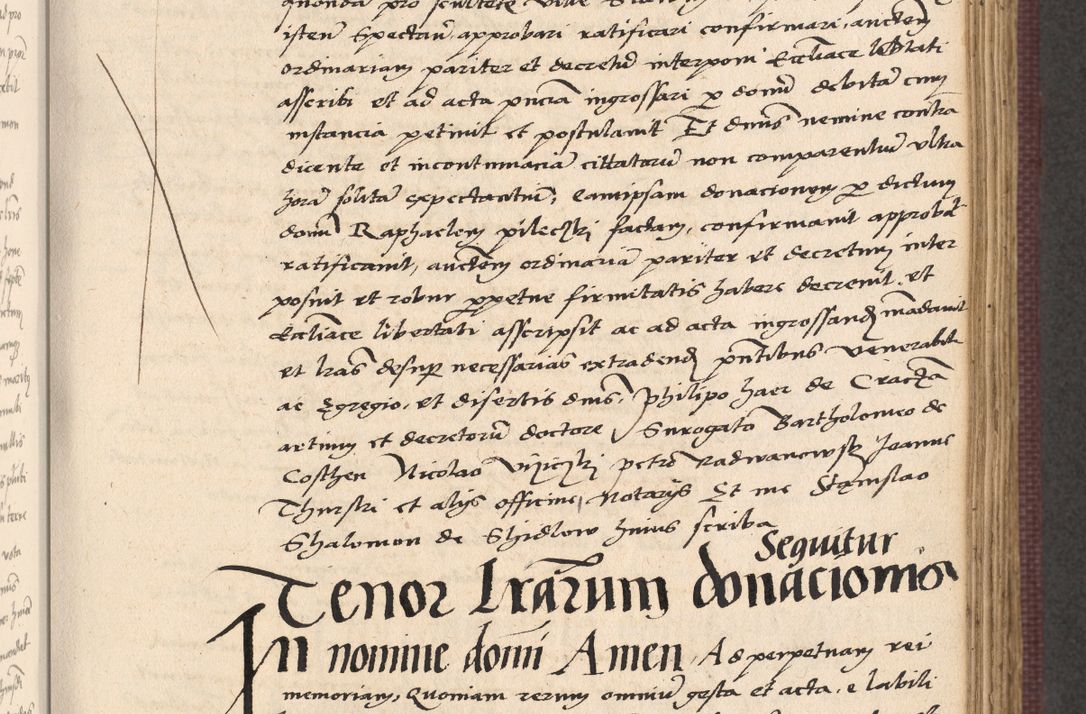 quonda pro
isten Spectan, approbari ratificari confirmari, aucten
ordinariam pariter et decretū interponi Eccliace lib̄tati
asscribi et ad acta pn̄cia ingrossari p̱ domū debita cum
instancia petiuit et postulauit Et dn̄us nemine contra
dicente et incontumaciā cittatorū non comparentiū ultra
horā solitā expectantiū, eamipsam donacionem p̱ dictum
domū Raphaelem pileczki factam, confirmauit approbat
ratificauit, aucten̄ ordinariā pariter et decretum inter
posuit et robur pp̱etue firmitatis habere decreuit, et
Eccliace libertati asscripsit ac ad acta ingrossand mādauit
et lr̄as desup̱ necessarias extradend pn̄tibus venerabili
ac Egregio, et disertis dn̄is, Philipo haer de Cracta
artium et decretorū doctore, Surogato Bartholomeo de
Costhen Nicolao Viziczki petro Radwanowsky Joanne
Thurski et alijs officine notarijs Et me Stanislao
Shalomon de Shidlow huius scriba
Sequitur
Tenor Lrārum donacionis
In nomine domī Amen, Ad perpetuam rei
memoriam, Quoniam rerum omniū gesta et acta, e labili